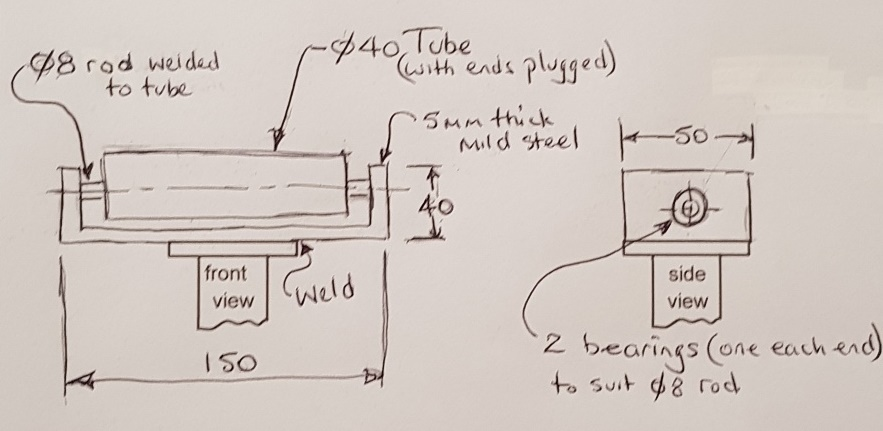 Ø8 rod welded
to tube
Ø40 Tube
(with ends plugged)
5mm thick
Mild steel
50
40
front
view
Weld
150
side
view
2 bearings (one each end)
to suit Ø8 rod